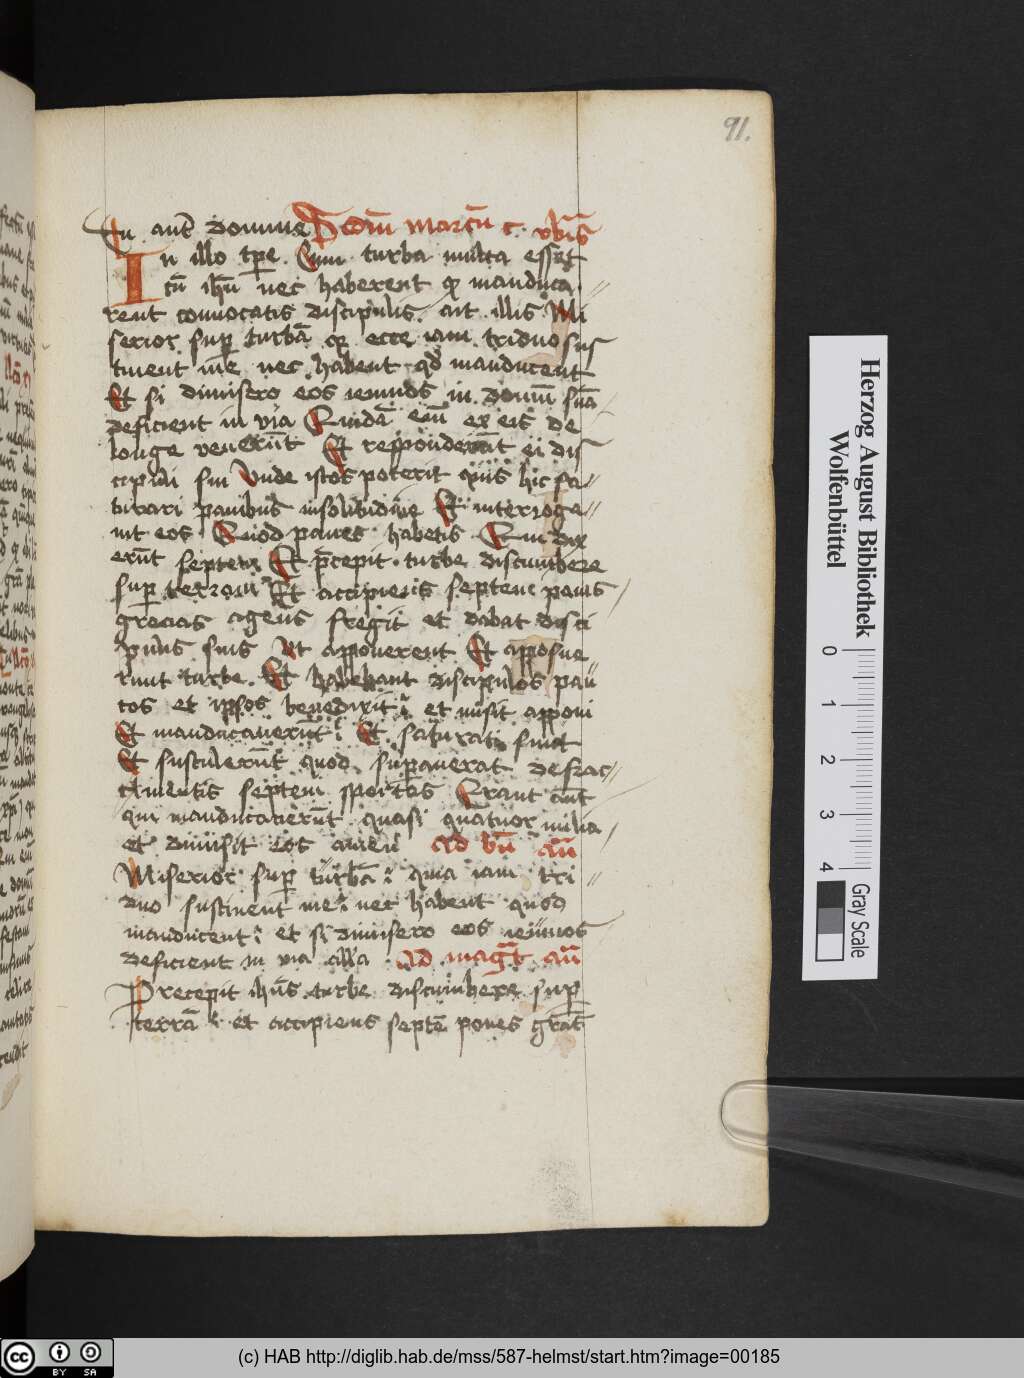 91.
Tu aut̄ domine Scdm̄ marcū c. vbis
In illo tp̄e. Cum turba multa esset
cū ihū nec haberent qͦ manduca
rent conuocatis discipulis ait illis Mi
serior sup̄ turbā qͥ ecce iam triduo sus
tinent me nec habent qd̄ manducent
Et si dimisero eos ieiunos in domū suā
deficient in via Quidā em̄ ex eis de
longe venerūt Et responderūt ei dis
cipuli sui Unde istos poterit quis hic sa
turari panibus insolitudine Et interroga
uit eos Quod panes habetis Qui dix
erūt septem Et p̄cepit turbe discumbere
sup̄ terram Et accipiens septem panis
gracias agens fregit et dabat disci
pulis suis Ut apponerent Et apposue
runt turbe. Et habebant discipulos pau
cos et ipsos benedixit et iussit apponi
Et manducauerūt Et saturati sunt
Et sustulerūt quod supauerat defrac
cīmentis septem sportas Erant aūt
qui manducauerūt quasi quatuor milia
et dimisit eos amen Ad bn̄ an̄
Miserior sup̄ turbā quia iam tri
duo sustinent me nec habent quod
manducent et si dimisero eos ieiunos
deficient in via alla Ad maḡt an̄
Precepit ihūs turbe discumbere sup̄
terrā et accipiens septē panes grās
Herzog August Bibliothek
Wolfenbüttel
0 1 2 3 4
Gray Scale
cc BY SA
(c) HAB http://diglib.hab.de/mss/587-helmst/start.htm?image=00185